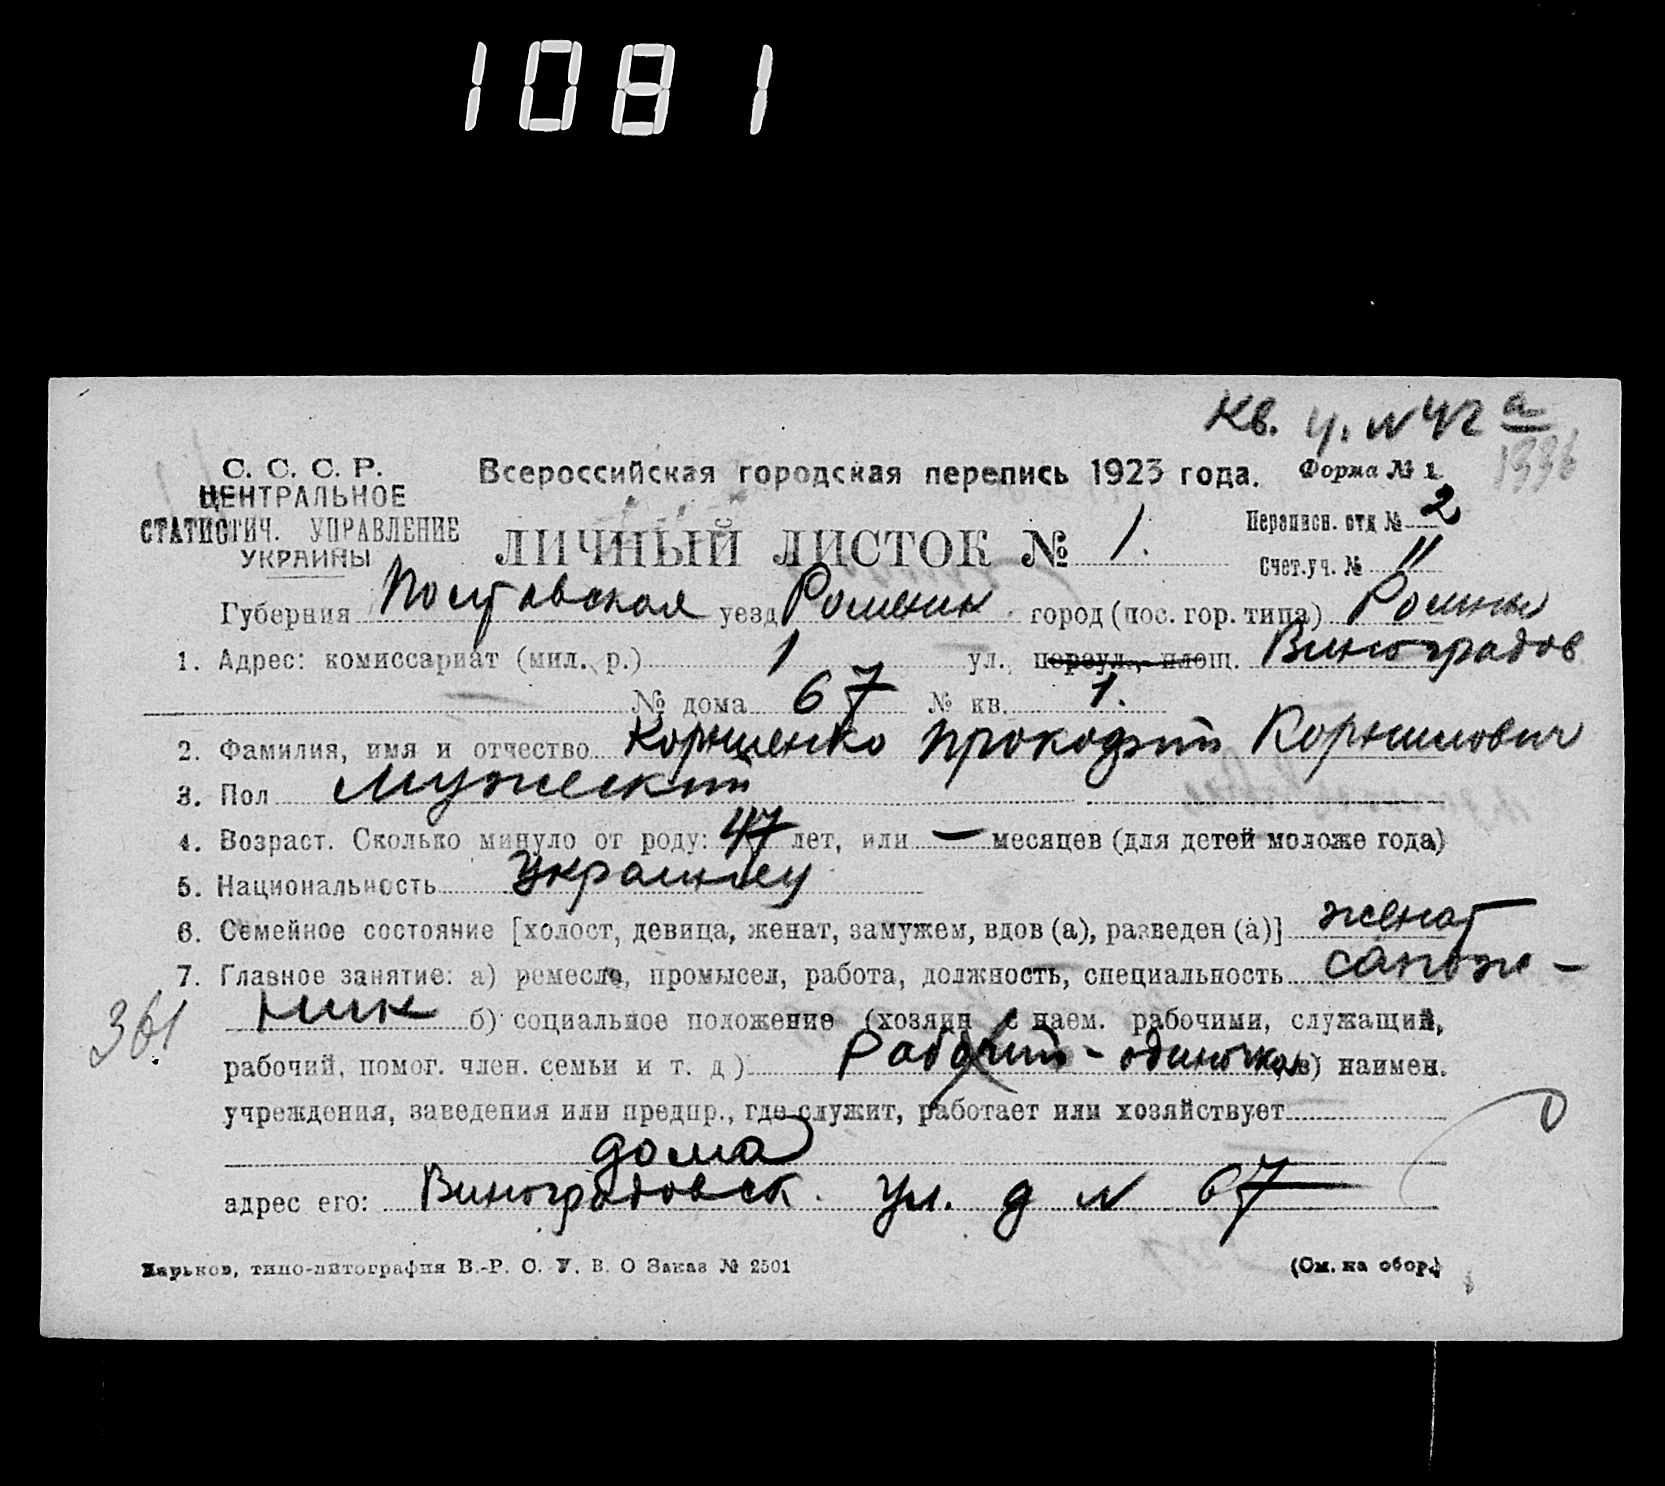 1081
Кв. у. № 42 а
1336
С. С. С. Р.
ЦЕНТРАЛЬНОЕ
СТАТИСТИЧ. УПРАВЛЕНИЕ
УКРАИНЫ
Всероссийская городская перепись 1923 года. Форма № 1.
ЛИЧНЫЙ ЛИСТОК № 1.
Переписн. отд № 2
Счет.уч. № 11
Губерния Полтавская уезд Роменск. город (пос. гор. типа) Ромны
1. Адрес: комиссариат (мил. р.) 1 ул., переул., площ. Виноградов
№ дома 67 № кв. 1.
2. Фамилия, имя и отчество Прокофий
3. Пол Мужеский
4. Возраст. Сколько минуло от роду: 47 лет, или — месяцев (для детей моложе года)
5. Национальность Украинец
6. Семейное состояние [холост, девица, женат, замужем, вдов (а), разведен (а)] женат
7. Главное занятие: а) ремесло, промысел, работа, должность, специальность сапож-
361
ник б) социальное положение (хозяин с наем. рабочими, служащий,
рабочий, помог. член. семьи и т. д) Рабочий - одиночка в) наимен.
учреждения, заведения или предпр., где служит, работает или хозяйствует
0
дома
адрес его: Виноградовск. ул. д № 67
Харьков, типо-литография В.-Р. О. У. В. О Заказ № 2501
(См. на обор.)